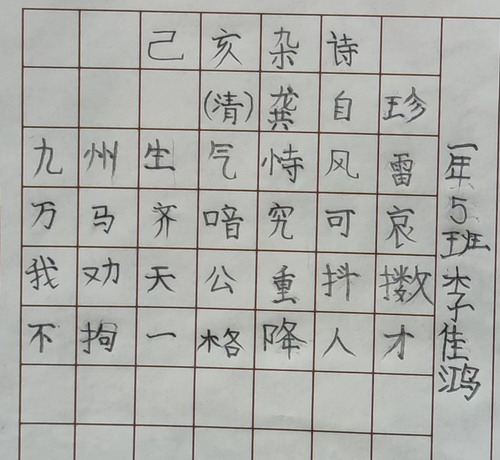 己亥杂诗
(清)龚自珍
九州生气恃风雷
万马齐喑究可哀
我劝天公重抖擞
不拘一格降人才
一年5班李佳鸿